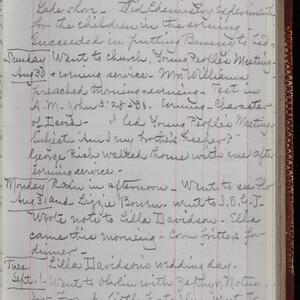 Lake Shore - Did Chemistry Experiments
for the children in the evening
Succeeded in putting Bunnie to bed.
Sunday Went to church, Young People's Meeting
Aug 30 & evening service - Mr. Williams
preached morning & evening - Text in
A.M. John 3:28 Evening - Character
of David. I led Young People's Meeting
Subject "Am I my brother's Keeper?"
George Rich walked home with me after
evening service -
Monday Rain in afternoon - Went to see Flo
Aug 31 and Lizzie Bourn. went to I.O.G.T.
Wrote note to Lilla Davidson - Ella
came this morning - Corn fritters for
dinner -
Tues. Lilla Davidson's wedding day -
Sept. 1. Went to Oberlin with